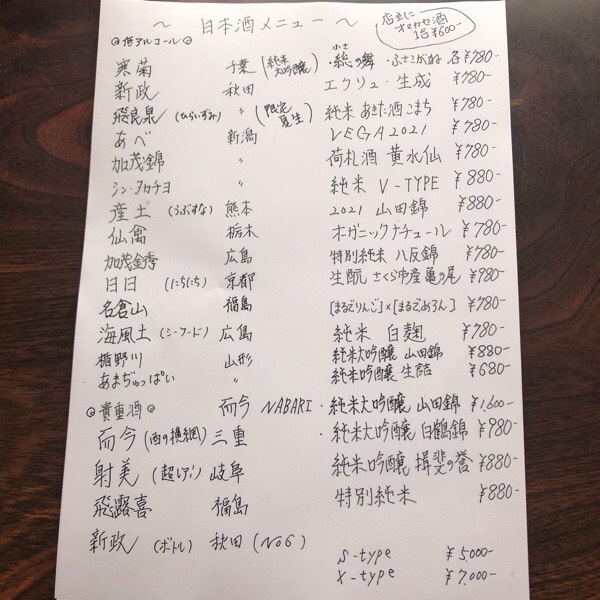 〜 日本酒メニュー 〜
店主に
オマカセ酒
1合¥600-
◎低アルコール◎
寒菊 千葉 (純米大吟醸) ・総(ふさ)の舞・ふさこがね 各¥780-
新政 秋田 エクリュ・生成 ¥780-
飛良泉 (ひらいずみ) 〃 (限定夏生) 純米 あきた酒こまち ¥780-
あべ 新潟 VEGA 2021 ¥780-
加茂錦 〃 荷札酒 黄水仙 ¥780-
シン・タカチヨ 〃 純米 V-TYPE ¥880-
産土 (うぶすな) 熊本 2021 山田錦 ¥880-
仙禽 栃木 オーガニックナチュール ¥780-
加茂金秀 広島 特別純米 八反錦 ¥780-
日日 (にちにち) 京都
生酛 さくら市産 亀の尾 ¥980-
名倉山 福島 [まるごりんご]×[まるごめろん] ¥780-
海風土 (シーフード) 広島 純米 白麹 ¥780-
楯野川 山形 純米大吟醸 山田錦 ¥880-
あまぢゅっぱい 〃 純米吟醸 生詰 ¥680-
◎貴重酒◎ 而今 NABARI ・純米大吟醸 山田錦 ¥1,600-
而今 (西の横綱) 三重 ・純米大吟醸 白鶴錦 ¥980-
射美 (超レア!) 岐阜 純米吟醸 揖斐の誉 ¥880-
飛露喜 福島 特別純米 ¥880-
新政 (ボトル) 秋田 (No6)
S-type ¥5,000-
X-type ¥7,000-